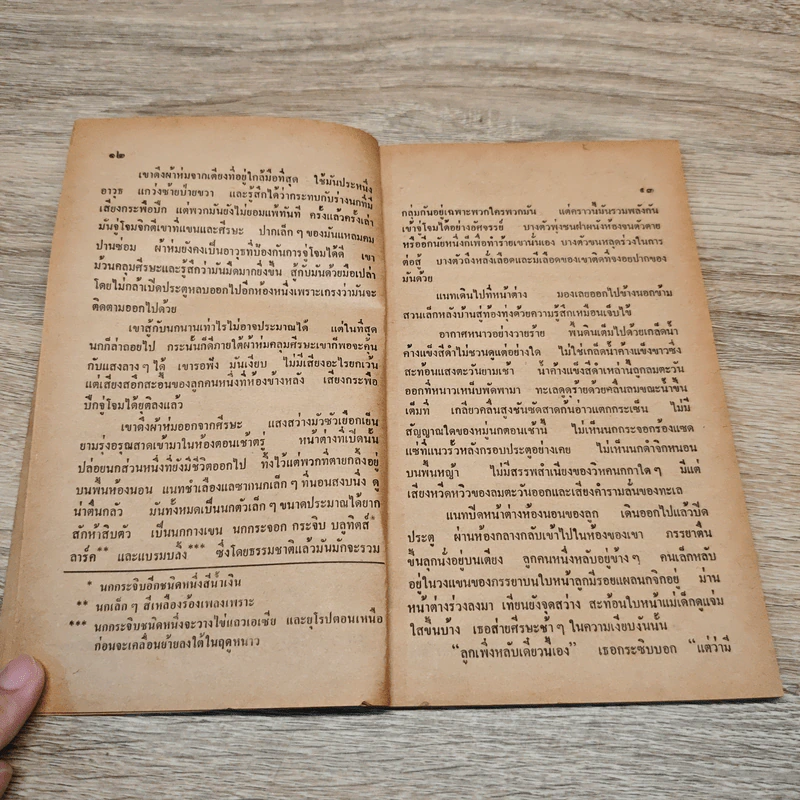 ๑๒
เขาดึงผ้าห่มจากเตียงที่อยู่ใกล้มือที่สุด ใช้มันประหนึ่ง
อาวุธ แกว่งซ้ายป่ายขวา และรู้สึกได้ว่ากระทบกับร่างนกที่มี
เสียงกระพือปีก แต่พวกมันยังไม่ยอมแพ้ทันที ครั้งแล้วครั้งเล่า
มันจู่โจมจิกตีเขาที่แขนและศีรษะ ปากเล็ก ๆ ของมันแหลมคม
ปานซ่อม ผ้าห่มยังคงเป็นอาวุธที่ป้องกันการจู่โจมได้ดี เขา
ม้วนคลุมศีรษะและรู้สึกว่ามันมืดมากยิ่งขึ้น สู้กับมันด้วยมือเปล่า
โดยไม่กล้าเปิดประตูหลบออกไปอีกห้องหนึ่งเพราะเกรงว่ามันจะ
ติดตามออกไปด้วย
เขาสู้กับนกนานเท่าไรไม่อาจประมาณได้ แต่ในที่สุด
นกก็ล่าถอยไป กระนั้นก็ดีภายใต้ผ้าห่มคลุมศีรษะเขาก็พอจะค้น
กับแสงลาง ๆ ได้ เขารอฟัง มันเงียบ ไม่มีเสียงอะไรยกเว้น
แต่เสียงสะอึกสะอื้นของลูกคนหนึ่งที่ห้องข้างหลัง เสียงกระพือ
ปีกจู่โจมได้ยุติลงแล้ว
เขาดึงผ้าห่มออกจากศีรษะ แสงสว่างมัวซัวเยือกเย็น
ยามรุ่งอรุณสาดเข้ามาในห้องตอนเช้าตรู่ หน้าต่างที่เปิดนั้น
ปล่อยนกส่วนหนึ่งที่ยังมีชีวิตออกไป ทิ้งไว้แต่พวกที่ตายกลิ้งอยู่
บนพื้นห้องนอน แนทชำเลืองแลซากนกเล็ก ๆ ที่นอนสงบนิ่ง ดู
น่าตื่นกลัว มันทั้งหมดเป็นนกตัวเล็ก ๆ ขนาดประมาณได้ยาก
สักห้าสิบตัว เป็นนกกางเขน นกกระจอก กระจิบ บลูทิตส์*
ลาร์ค** และแบรมบลิ้ง*** ซึ่งโดยธรรมชาติแล้วมันมักจะรวม
* นกกระจิบอีกชนิดหนึ่งสีน้ำเงิน
** นกเล็ก ๆ สีเหลืองร้องเพลงเพราะ
*** นกกระจิบชนิดหนึ่งจะวางไข่แถวเอเซีย และยุโรปตอนเหนือ
ก่อนจะเคลื่อนย้ายลงใต้ในฤดูหนาว
๑๓
กลุ่มกันอยู่เฉพาะพวกใครพวกมัน แต่คราวนี้มันรวมพลังกัน
เข้าจู่โจมได้อย่างอัศจรรย์ บางตัวพุ่งชนฝาผนังห้องจนตัวตาย
หรืออีกนัยหนึ่งก็เพื่อทำร้ายเขานั่นเอง บางตัวขนหลุดร่วงในการ
ต่อสู้ บางตัวถึงหลั่งเลือดและมีเลือดของเขาติดที่จงอยปากของ
มันด้วย
แนทเดินไปที่หน้าต่าง มองเลยออกไปข้างนอกข้าม
สวนเล็กหลังบ้านสู่ท้องทุ่งด้วยความรู้สึกเหมือนเจ็บไข้
อากาศหนาวอย่างวายร้าย พื้นดินเต็มไปด้วยเกล็ดน้ำ
ค้างแข็งสีดำไม่ชวนดูแต่อย่างใด ไม่ใช่เกล็ดน้ำค้างแข็งขาวซึ่ง
สะท้อนแสงตะวันยามเช้า น้ำค้างแข็งสีดำเหล่านี้ลูกลมตะวัน
ออกที่หนาวเหน็บพัดพามา ทะเลดุดุร้ายด้วยคลื่นลมขณะน้ำขึ้น
เต็มที่ เกลียวคลื่นสูงชันซัดสาดก้นอ่าวแตกกระเซ็น ไม่มี
สัญญาณใดของหมู่นกตอนเช้านี้ ไม่เห็นนกกระจอกร้องแซด
แซ่ที่แนวรั้วหลังกรอบประตูอย่างเคย ไม่เห็นนกดำจิกหนอน
บนพื้นหญ้า ไม่มีสรรพสำเนียงของวิหคนกกาใด ๆ มีแต่
เสียงหวีดหวิวของลมตะวันออกและเสียงคำรามลั่นของทะเล
แนทปิดหน้าต่างห้องนอนของลูก เดินออกไปแล้วปิด
ประตู ผ่านห้องกลางกลับเข้าไปในห้องของเขา ภรรยาตื่น
ขึ้นลุกนั่งอยู่บนเตียง ลูกคนหนึ่งหลับอยู่ข้าง ๆ คนเล็กหลับ
อยู่ในวงแขนของภรรยาบนใบหน้าลูกมีรอยแผลนกจิกอยู่ ม่าน
หน้าต่างร่วงลงมา เทียนยังจุดสว่าง สะท้อนใบหน้าแม่เด็กดูแจ่ม
ใสขึ้นบ้าง เธอส่ายศีรษะช้า ๆ ในความเงียบงันนั้น
“ลูกเพิ่งหลับเดี๋ยวนี้เอง” เธอกระซิบบอก “แต่ว่ามี